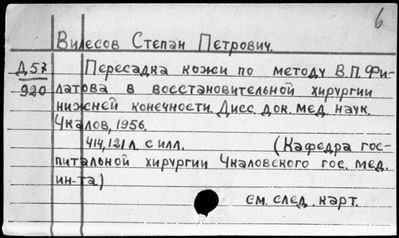 6
Вилесов Степан Петрович.
Д57 Пересадка кожи по методу В.П. Фи-
920 латова в восстановительной хирургии
нижней конечности. Дисс. док. мед. наук.
Чкалов, 1956.
414, 121 л. с илл. (Кафедра гос-
питальной хирургии Чкаловского гос. мед.
ин-та.)
см. след. карт.